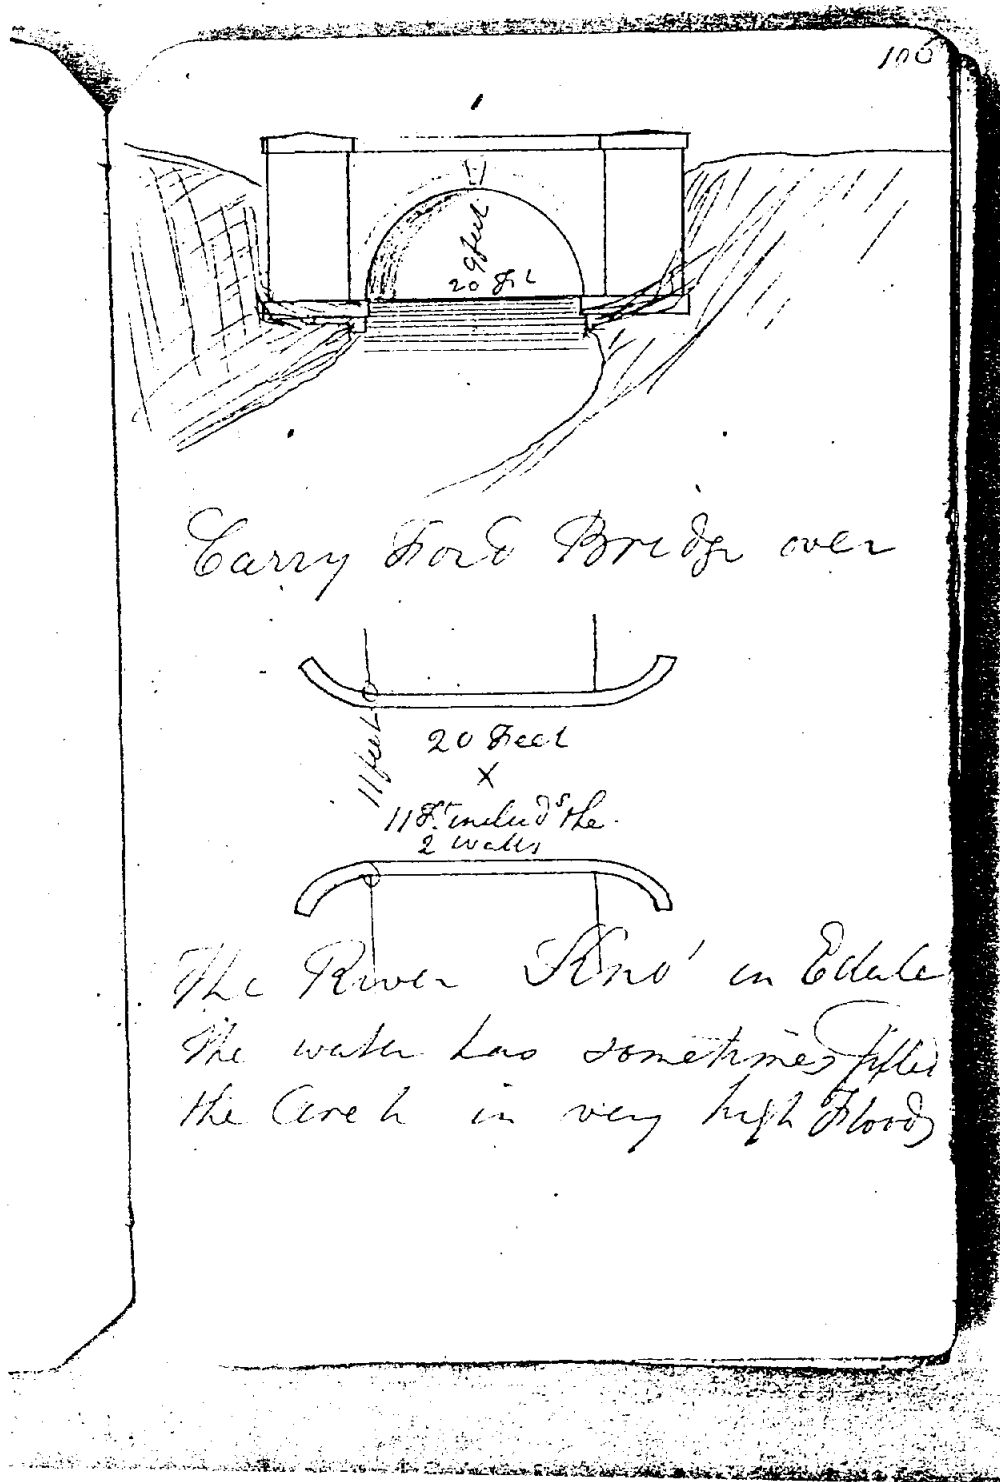 106
9 feet
20 Ft
Carry Ford Bridge over
11 feet
20 Feet
X
11 Ft includs the
2 walls
The River 'Kno' in Edale
The water has sometimes filled
the Arch in very high Floods